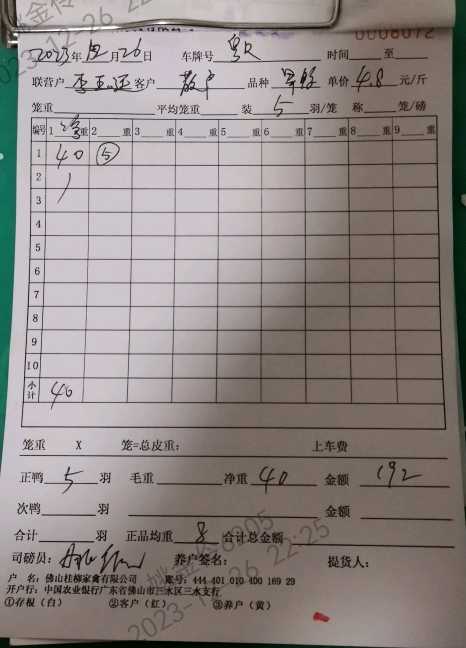 0008072
2023年12月26日 车牌号 粤 时间 至
联营户 李 客户 散户 品种 单价 4.8 元/斤
笼重 平均笼重 装 5 羽/笼 称 笼/磅
编号 1 净重 2 重 3 重 4 重 5 重 6 重 7 重 8 重 9 重
1 40 ⑤
2
3
4
5
6
7
8
9
10
小计 40
笼重 X 笼=总皮重: 上车费
正鸭 5 羽 毛重 净重 40 金额 192
次鸭 羽 金额
合计 羽 正品均重 8 合计总金额
司磅员: 养户签名: 提货人:
户 名: 佛山桂柳家禽有限公司 账号: 444 401 010 400 169 29
开户行: 中国农业银行广东省佛山市三水区三水支行
①存根(白) ②客户(红) ③养户(黄)
姚金伶 6205
2023-12-26 22:25